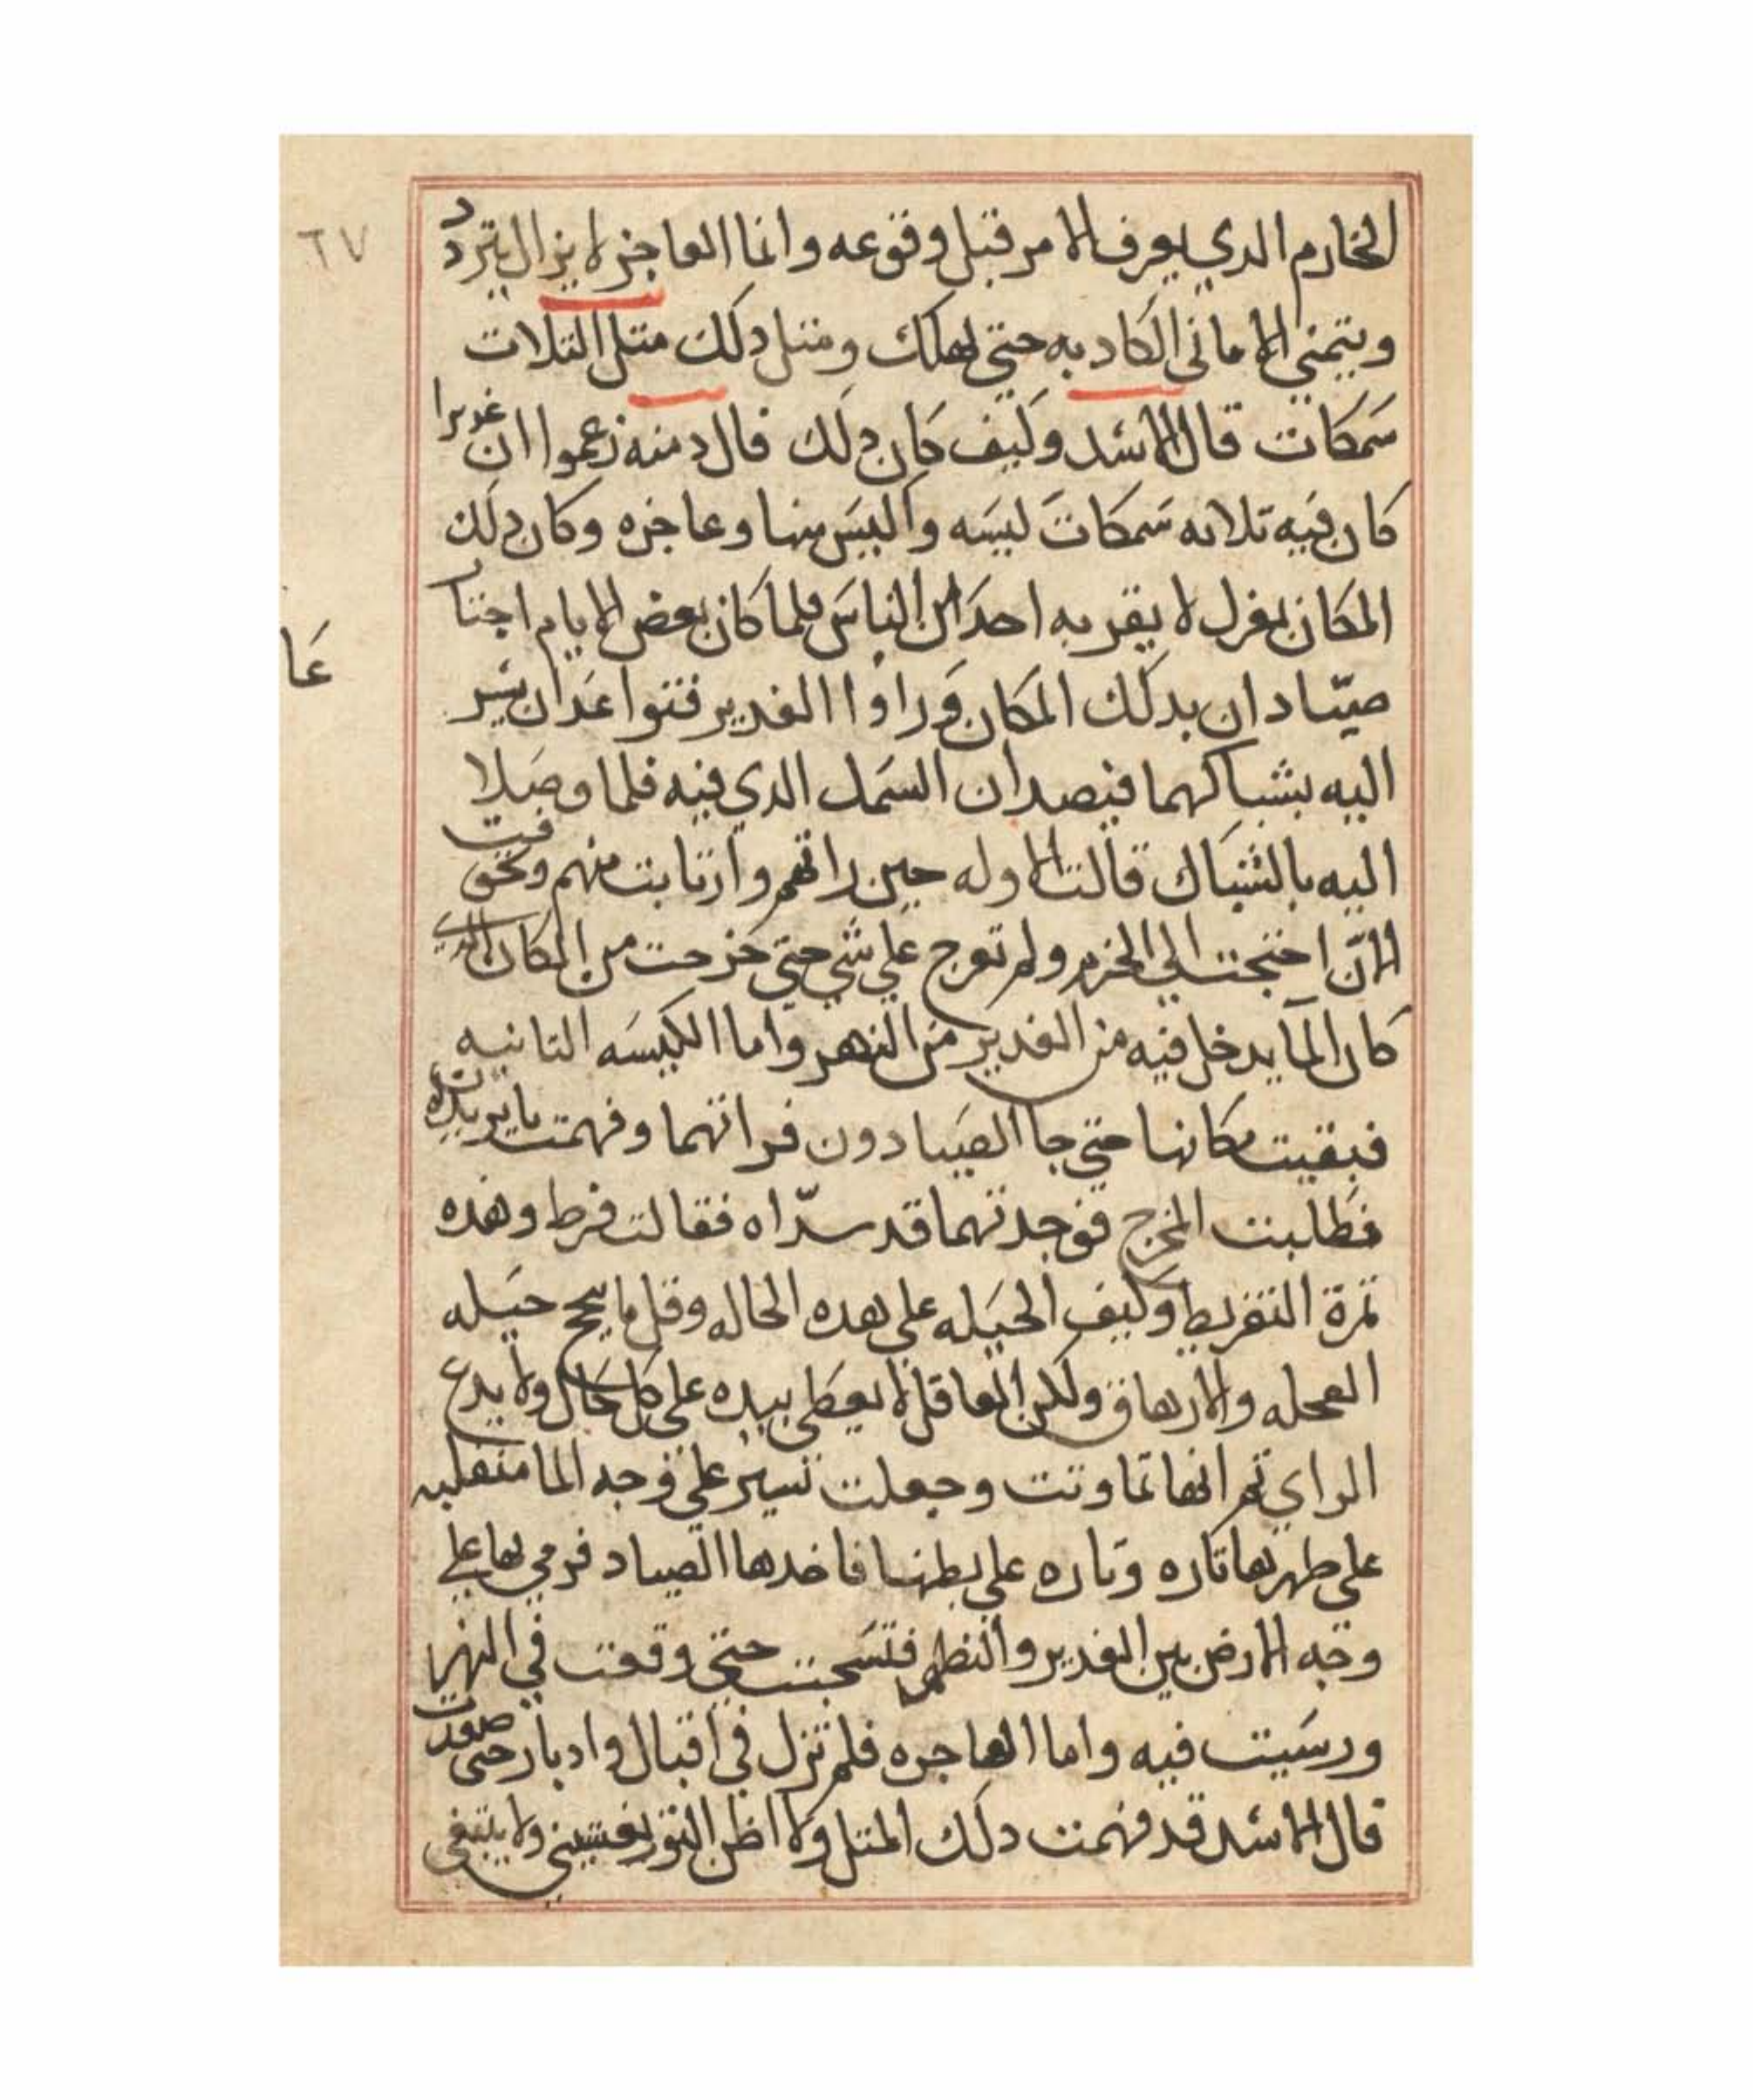 ٦٧
الحازم الدي يعرف الامر قبل وقوعه وانما العاجز لا يزال يتردد
ويتمني الاماني الكادبه حتي يهلك ومتل دلك متل التلات
سمكات قال الاسد وكيف كان دلك قال دمنه زعموا ان غديرا
كان فيه تلاته سمكات كيسه واكيس منها وعاجزه وكان دلك
المكان بمعزل لا يقربه احدا من الناس فلما كان بعض الايام اجتا
عا
صيادان بدلك المكان وراوا الغدير فتواعدا ان يسير
اليه بشباكهما فيصدان السمك الدي فيه فلما وصلا
اليه بالشباك قالت الاوله حين راتهم وارتابت منهم وتخوفت
الان احتجت الي الحزم ولم تعرج علي شي حتي خرجت من المكان الدي
كان الما يدخل فيه من الغدير من النهر واما الكيسه التانيه
فبقيت مكانها حتي جا الصيادون فراتهما وفهمت ما يريدان
فطلبت المخرج فوجدتهما قد سداه فقالت فرط وهده
تمرة التفريط وكيف الحيله علي هده الحاله وقل ما ينجح حيله
العجله والارهاق ولكن العاقل لا يعطي بيده علي كل حال ولا يدع
الراي تم انها تماوتت وجعلت تسير علي وجه الما منقلبه
علي ظهرها تاره وتاره علي بطنها فاخدها الصياد فرمي بها علي
وجه الارض بين الغدير والنهر فتسحبت حتي وقعت في النهر
ورسيت فيه واما العاجزه فلم تزل في اقبال وادبار حتي صيدت
قال الاسد قد فهمت دلك المتل ولا اظن التور يغشني ولا يبتغي